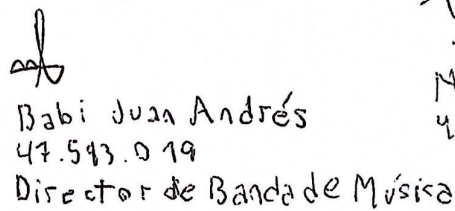 Babi Juan Andrés
47.593.019
Director de Banda de Música